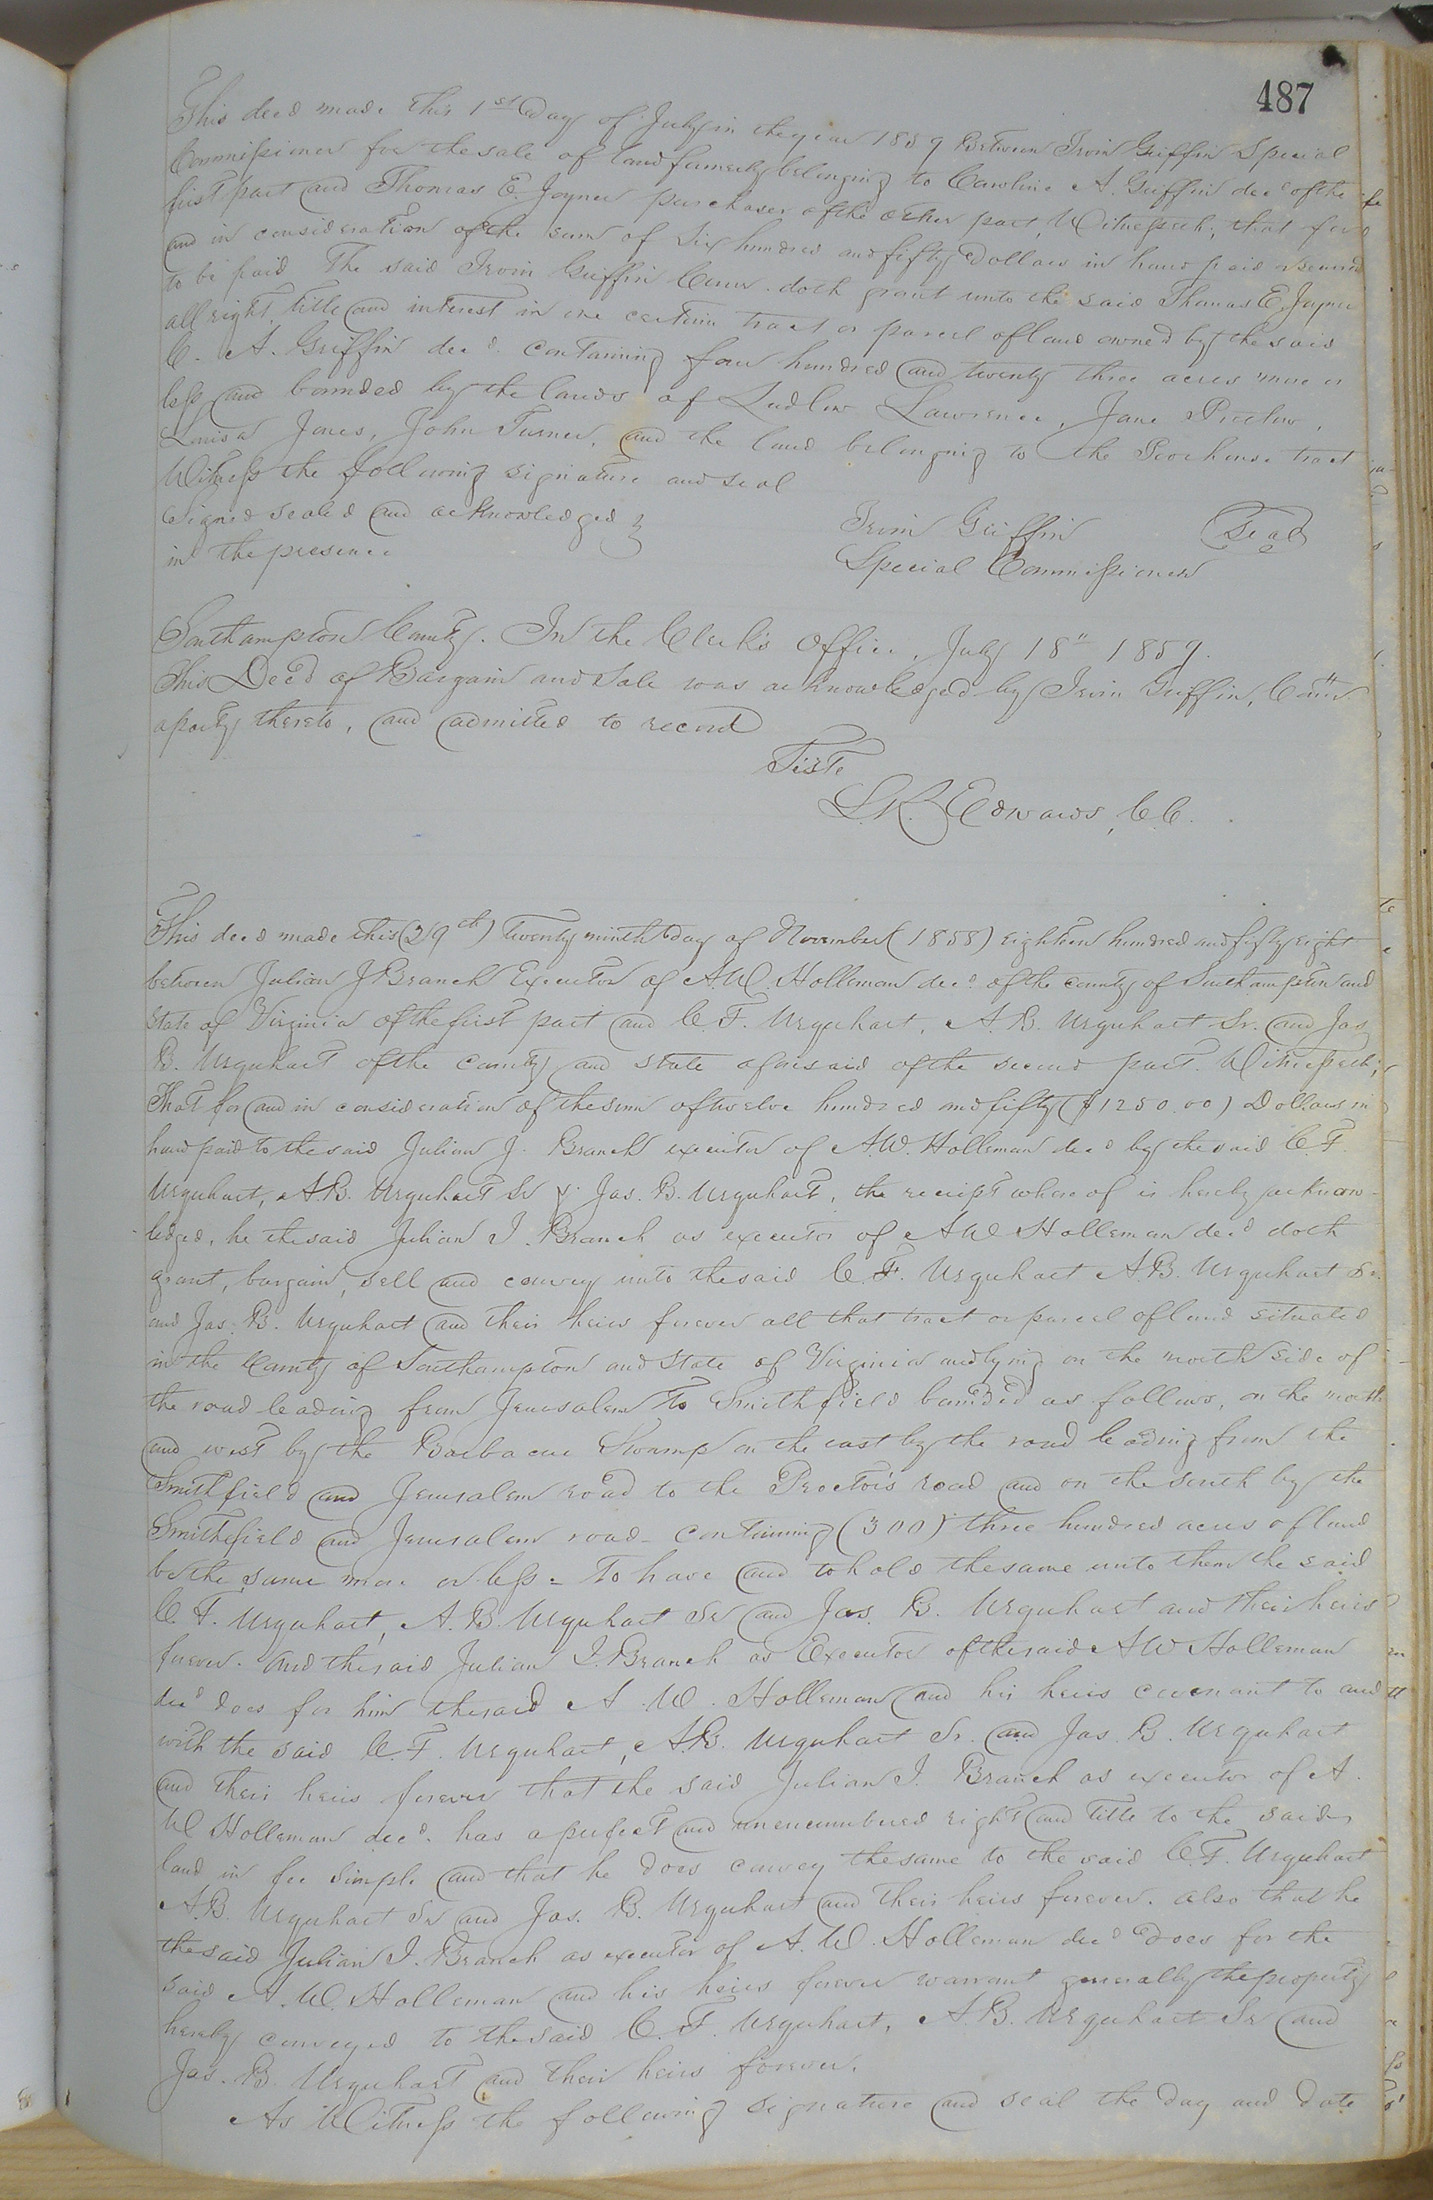 487
This deed made this 1st day of July in the year 1859 Between Irvin Griffin Special
Commissioner for the sale of land formerly belonging to Caroline A. Griffin decd of the
first part and Thomas E. Joyner purchaser of the other part, Witnesseth; that for
and in consideration of the sum of Six hundred and fifty Dollars in hand paid or secured
to be paid The said Irvin Griffin Comr. doth grant unto the said Thomas E. Joyner
all right, title and interest in one certain tract or parcel of land owned by the said
C. A. Griffin decd. containing four hundred and twenty three acres more or
less and bounded by the lands of Ludlow Lawrence, Jane
Louisa Jones, John Turner, and the land belonging to the Poorhouse tract
Witness the following signature and seal
Signed sealed and acknowledged }
in the presence
Irvin Griffin (Seal)
Special Commissioner
Southampton County. In the Clerk's Office, July 18th 1859.
This Deed of Bargain and Sale was acknowledged by Irvin Griffin, Comr
a party thereto, and admitted to record
Teste
L.R. Edwards, C.C.
This deed made this (29th) twenty ninth day of November (1858) eighteen hundred and fifty eight
between Julian J Branch Executor of A.W. Holleman decd. of the county of Southampton and
State of Virginia of the first part and C. F. Urquhart, A. B. Urquhart Sr. and Jas
B. Urquhart of the county and state aforesaid of the second part. Witnesseth;
That for and in consideration of the sum of twelve hundred and fifty ($1250.00) Dollars in
hand paid to the said Julian J. Branch executor of A.W. Holleman decd by the said C. F.
Urquhart, A.B. Urquhart Sr & Jas. B. Urquhart, the receipt whereof is hereby acknow-
ledged, he the said Julian J. Branch as executor of A W Holleman decd doth
grant, bargain, sell and convey unto the said C. F. Urquhart A.B. Urquhart Sr.
and Jas. B. Urquhart and their heirs forever all that tract or parcel of land situated
in the County of Southampton and State of Virginia and lying on the north side of
the road leading from Jerusalem to Smithfield bounded as follows, on the north
and west by the Barbacue Swamp on the east by the road leading from the
Smithfield and Jerusalem road to the Proctor's road and on the south by the
Smithfield and Jerusalem road - containing (300) three hundred acres of land
be the same more or less = To have and to hold the same unto them the said
C. F. Urquhart, A. B. Urquhart Sr and Jas. B. Urquhart and their heirs
forever. And the said Julian J. Branch as Executor of the said A W Holleman
decd does for him the said A. W. Holleman and his heirs covenant to and
with the said C. F. Urquhart, A.B. Urquhart Sr. and Jas. B. Urquhart
and their heirs forever that the said Julian J. Branch as executor of A.
W Holleman decd. has a perfect and unencumbered right and title to the said
land in fee simple and that he does convey the same to the said C. F. Urquhart
A.B. Urquhart Sr and Jas. B. Urquhart and their heirs forever. also that he
the said Julian J. Branch as executor of A. W. Holleman decd does for the
said A. W. Holleman and his heirs forever warrant generally the property
hereby conveyed to the said C. F. Urquhart, A. B. Urquhart Sr and
Jas. B. Urquhart and their heirs forever.
As Witness the following signature and seal the day and date